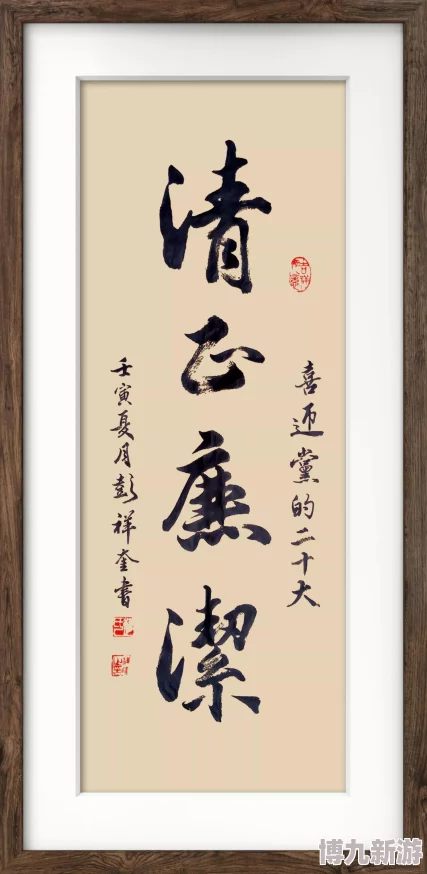 喜迎黨的二十大
清正廉潔
壬寅夏月彭祥奎書
博九新游